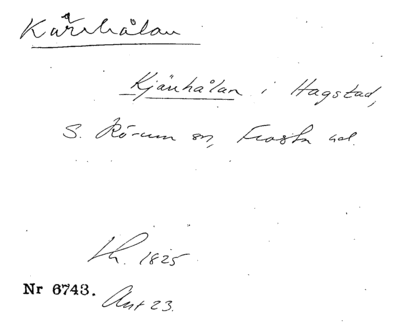 Kärrhålan
Kjärrhålan i Hagstad,
S. Rörum sn, Frosta hd.
Lh. 1825
Nr 6743. Ant 23.